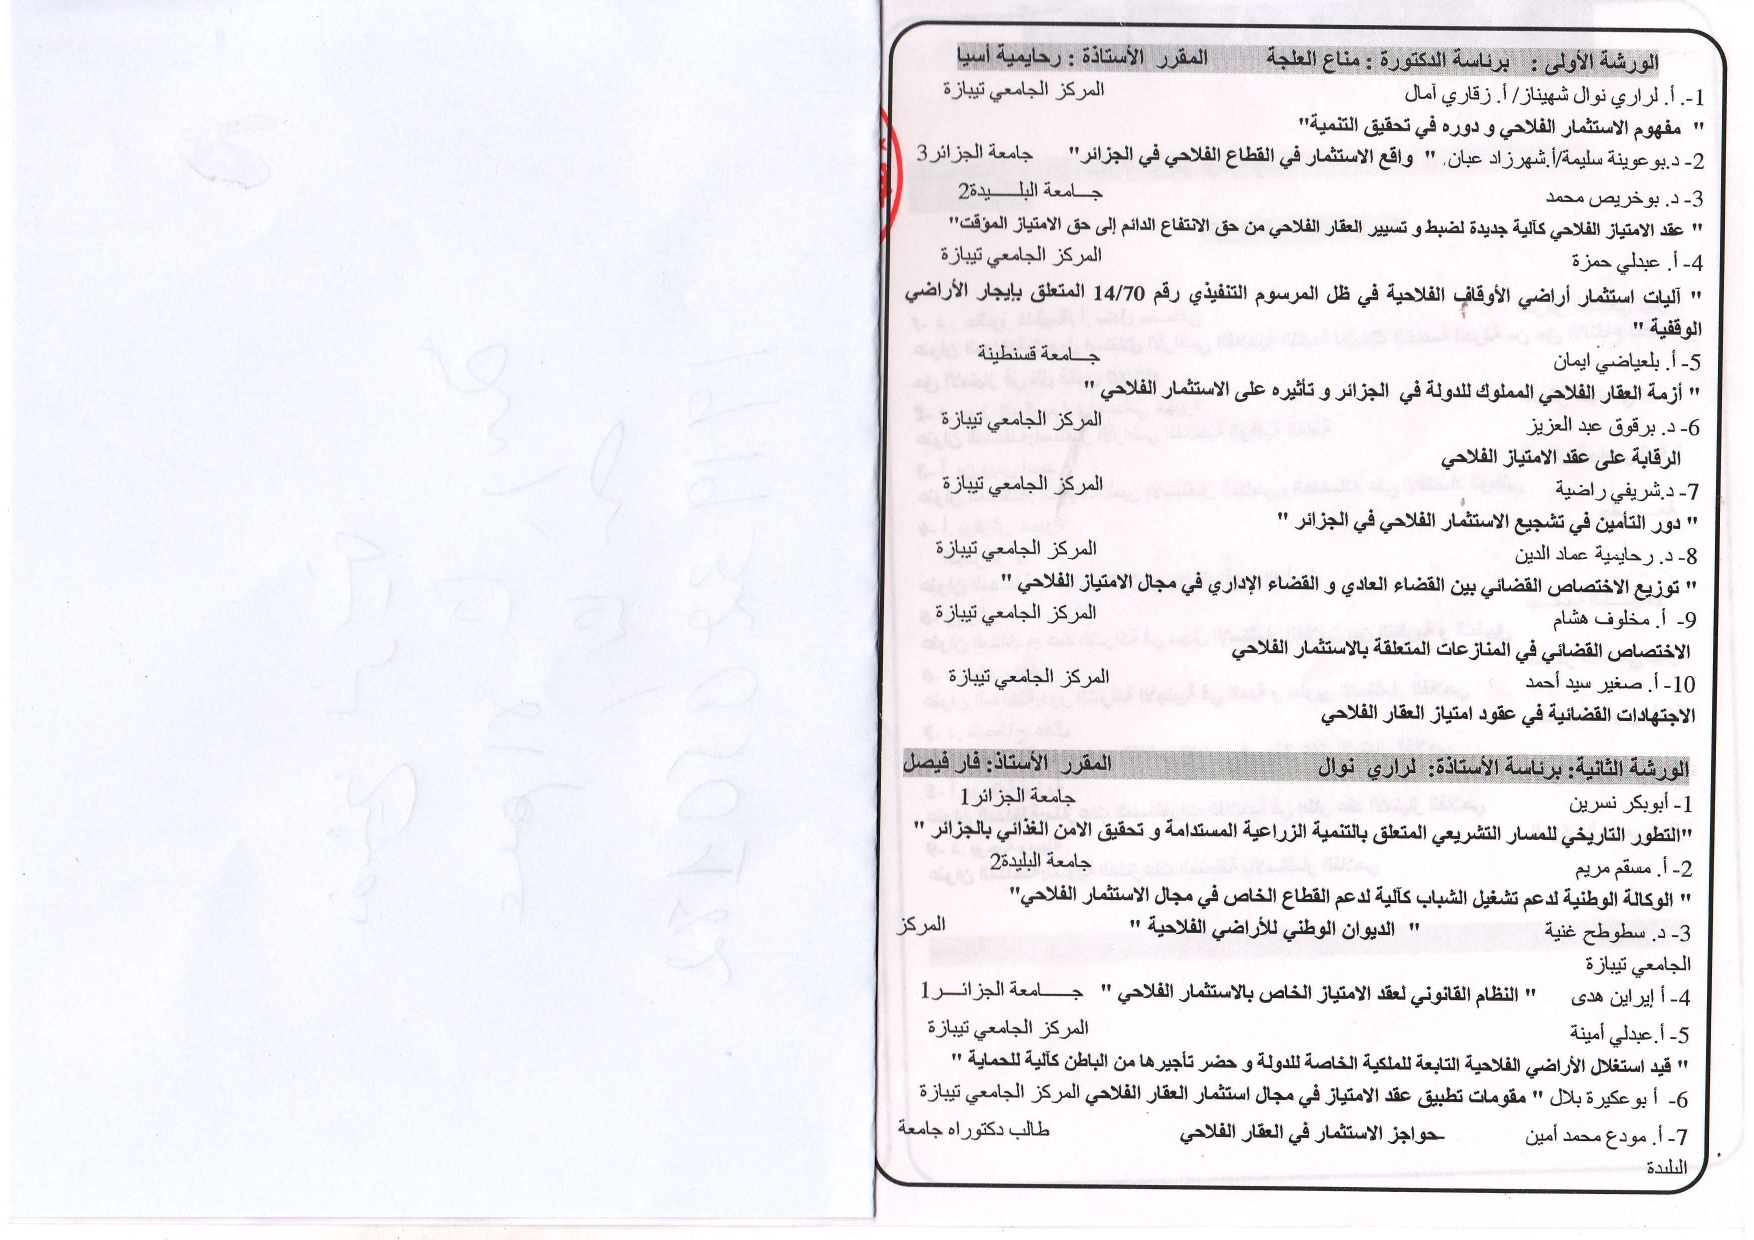 الورشة الأولى : برئاسة الدكتورة : مناع العلجة المقرر الأستاذة : رحايمية أسيا
1-. أ. لراري نوال شهيناز/ أ. زقاري آمال المركز الجامعي تيبازة
" مفهوم الاستثمار الفلاحي و دوره في تحقيق التنمية"
2- د.بوعوينة سليمة/أ.شهرزاد عبان. " واقع الاستثمار في القطاع الفلاحي في الجزائر" جامعة الجزائر3
3- د. بوخريص محمد جــامعة البلـــــيدة2
" عقد الامتياز الفلاحي كآلية جديدة لضبط و تسيير العقار الفلاحي من حق الانتفاع الدائم إلى حق الامتياز المؤقت"
4- أ. عبدلي حمزة المركز الجامعي تيبازة
" آليات استثمار أراضي الأوقاف الفلاحية في ظل المرسوم التنفيذي رقم 14/70 المتعلق بإيجار الأراضي
الوقفية "
5- أ. بلعياضي ايمان جــامعة قسنطينة
" أزمة العقار الفلاحي المملوك للدولة في الجزائر و تأثيره على الاستثمار الفلاحي "
6- د. برقوق عبد العزيز المركز الجامعي تيبازة
الرقابة على عقد الامتياز الفلاحي
7- د.شريفي راضية المركز الجامعي تيبازة
" دور التأمين في تشجيع الاستثمار الفلاحي في الجزائر "
8- د. رحايمية عماد الدين المركز الجامعي تيبازة
" توزيع الاختصاص القضائي بين القضاء العادي و القضاء الإداري في مجال الامتياز الفلاحي "
9- أ. مخلوف هشام المركز الجامعي تيبازة
الاختصاص القضائي في المنازعات المتعلقة بالاستثمار الفلاحي
10- أ. صغير سيد أحمد المركز الجامعي تيبازة
الاجتهادات القضائية في عقود امتياز العقار الفلاحي
الورشة الثانية: برئاسة الأستاذة: لراري نوال المقرر الأستاذ: فار فيصل
1- أبوبكر نسرين جامعة الجزائر1
"التطور التاريخي للمسار التشريعي المتعلق بالتنمية الزراعية المستدامة و تحقيق الامن الغذائي بالجزائر "
2- أ. مسقم مريم جامعة البليدة2
" الوكالة الوطنية لدعم تشغيل الشباب كآلية لدعم القطاع الخاص في مجال الاستثمار الفلاحي"
3- د. سطوطح غنية " الديوان الوطني للأراضي الفلاحية " المركز
الجامعي تيبازة
4- أ إيراين هدى " النظام القانوني لعقد الامتياز الخاص بالاستثمار الفلاحي " جـــــامعة الجزائــــر1
5- أ.عبدلي أمينة المركز الجامعي تيبازة
" قيد استغلال الأراضي الفلاحية التابعة للملكية الخاصة للدولة و حضر تأجيرها من الباطن كآلية للحماية "
6- أ بوعكيرة بلال " مقومات تطبيق عقد الامتياز في مجال استثمار العقار الفلاحي المركز الجامعي تيبازة
7- أ. مودع محمد أمين حواجز الاستثمار في العقار الفلاحي طالب دكتوراه جامعة
البليدة